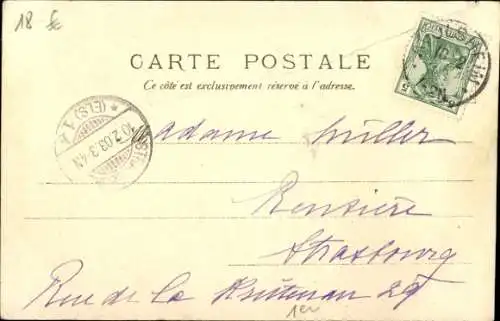 18
CARTE POSTALE
Ce côté est exclusivement réservé à l'adresse.
* (ELS) 1 *
10.2.03.3-4N
Madame Müller
Rentière
Strasbourg
Rue de la Krutenau 29